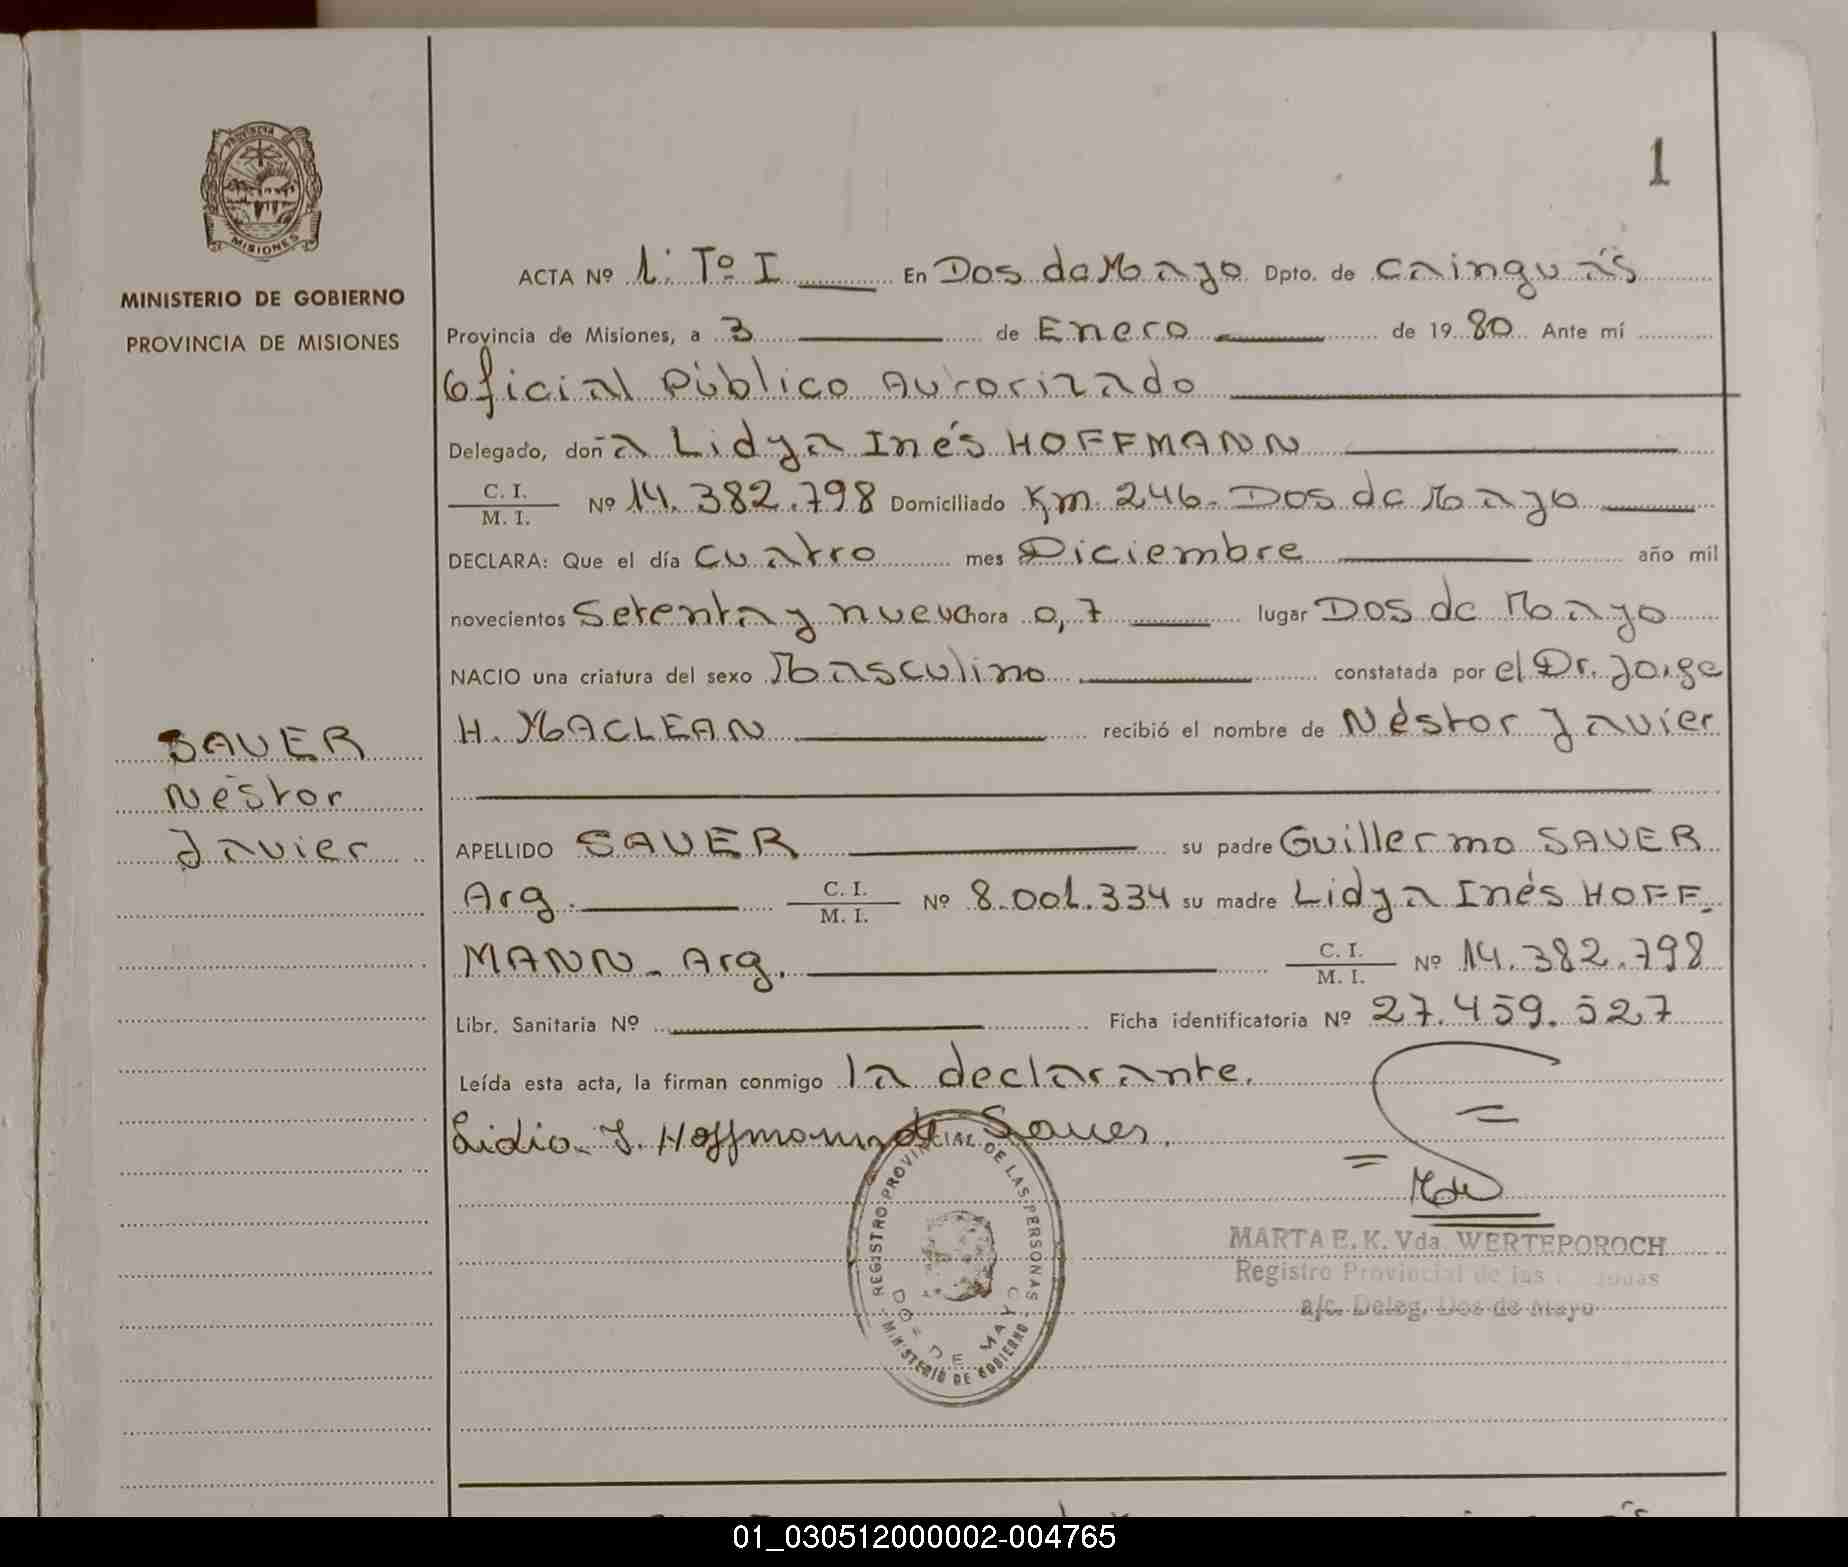 PROVINCIA DE
MISIONES
MINISTERIO DE GOBIERNO
PROVINCIA DE MISIONES
SAUER
Néstor
Javier
1
ACTA Nº 1. Tº I En Dos de Mayo Dpto. de Cainguás
Provincia de Misiones, a 3 de Enero de 1980 Ante mí
Oficial Público Autorizado
Delegado, doña Lidya Inés HOFFMANN
C. I. / M. I. Nº 14.382.798 Domiciliado Km. 246. Dos de Mayo
DECLARA: Que el día cuatro mes Diciembre año mil
novecientos setenta y nueve hora 0,7 lugar Dos de Mayo
NACIO una criatura del sexo Masculino constatada por el Dr. Jorge
H. MACLEAN recibió el nombre de Néstor Javier
APELLIDO SAUER su padre Guillermo SAUER
Arg. C. I. / M. I. Nº 8.001.334 su madre Lidya Inés HOFF-
MANN - Arg. C. I. / M. I. Nº 14.382.798
Libr. Sanitaria Nº Ficha identificatoria Nº 27.459.527
Leída esta acta, la firman conmigo la declarante.
Lidia I. Hoffmann de Sauer.
REGISTRO PROVINCIAL DE LAS PERSONAS
DOS DE MAYO
MINISTERIO DE GOBIERNO
MARTA E. K. Vda. WERTEPOROCH
Registro Provincial de las
a/c. Deleg. Dos de Mayo
01_030512000002-004765